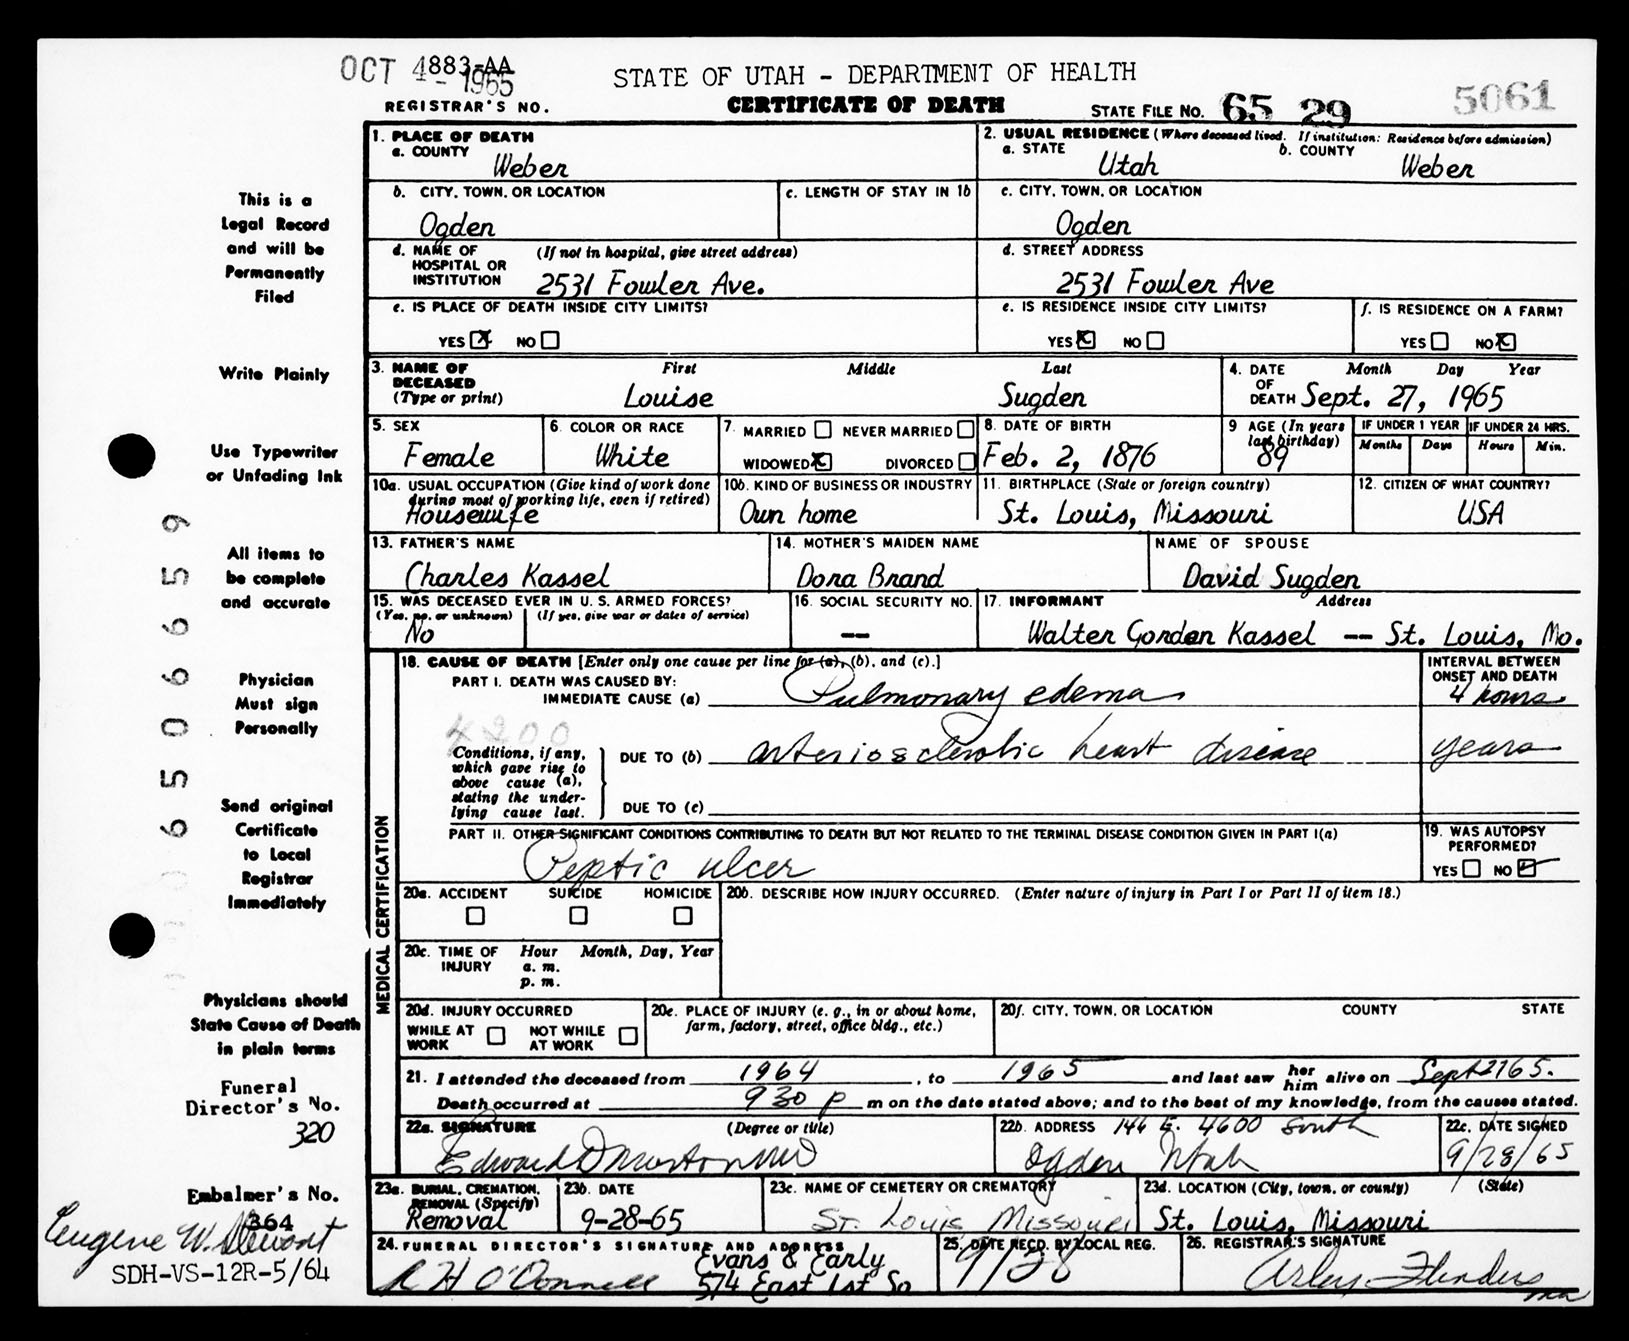 OCT 4 - 1965
883-AA
STATE OF UTAH - DEPARTMENT OF HEALTH
REGISTRAR'S NO.
CERTIFICATE OF DEATH
STATE FILE NO. 65 29
5061
1. PLACE OF DEATH
a. COUNTY
Weber
2. USUAL RESIDENCE (Where deceased lived. If institution: Residence before admission)
a. STATE
Utah
b. COUNTY
Weber
b. CITY, TOWN, OR LOCATION
Ogden
c. LENGTH OF STAY IN 1b
c. CITY, TOWN, OR LOCATION
Ogden
d. NAME OF HOSPITAL OR INSTITUTION (If not in hospital, give street address)
2531 Fowler Ave.
d. STREET ADDRESS
2531 Fowler Ave
e. IS PLACE OF DEATH INSIDE CITY LIMITS?
YES X NO
e. IS RESIDENCE INSIDE CITY LIMITS?
YES X NO
f. IS RESIDENCE ON A FARM?
YES NO X
3. NAME OF DECEASED (Type or print)
First Middle Last
Louise Sugden
4. DATE OF DEATH
Month Day Year
Sept. 27, 1965
5. SEX
Female
6. COLOR OR RACE
White
7. MARRIED NEVER MARRIED
WIDOWED X DIVORCED
8. DATE OF BIRTH
Feb. 2, 1876
9 AGE (In years last birthday)
89
IF UNDER 1 YEAR
Months Days
IF UNDER 24 HRS.
Hours Min.
10a. USUAL OCCUPATION (Give kind of work done during most of working life, even if retired)
Housewife
10b. KIND OF BUSINESS OR INDUSTRY
Own home
11. BIRTHPLACE (State or foreign country)
St. Louis, Missouri
12. CITIZEN OF WHAT COUNTRY?
USA
13. FATHER'S NAME
Charles Kassel
14. MOTHER'S MAIDEN NAME
Dora Brand
NAME OF SPOUSE
David Sugden
15. WAS DECEASED EVER IN U. S. ARMED FORCES?
(Yes, no, or unknown) (If yes, give war or dates of service)
No
16. SOCIAL SECURITY NO.
--
17. INFORMANT Address
Walter Gordon Kassel -- St. Louis, Mo.
MEDICAL CERTIFICATION
18. CAUSE OF DEATH [Enter only one cause per line for (a), (b), and (c).]
PART I. DEATH WAS CAUSED BY:
IMMEDIATE CAUSE (a) Pulmonary edema
INTERVAL BETWEEN ONSET AND DEATH
4 hours
4200
Conditions, if any, which gave rise to above cause (a), stating the underlying cause last.
DUE TO (b) arteriosclerotic heart disease
years
DUE TO (c)
PART II. OTHER SIGNIFICANT CONDITIONS CONTRIBUTING TO DEATH BUT NOT RELATED TO THE TERMINAL DISEASE CONDITION GIVEN IN PART I(a)
Peptic ulcer
19. WAS AUTOPSY PERFORMED?
YES NO
20a. ACCIDENT SUICIDE HOMICIDE
20b. DESCRIBE HOW INJURY OCCURRED. (Enter nature of injury in Part I or Part II of item 18.)
20c. TIME OF INJURY
Hour Month, Day, Year
a. m.
p. m.
20d. INJURY OCCURRED
WHILE AT WORK NOT WHILE AT WORK
20e. PLACE OF INJURY (e. g., in or about home, farm, factory, street, office bldg., etc.)
20f. CITY, TOWN, OR LOCATION COUNTY STATE
21. I attended the deceased from 1964, to 1965 and last saw her him alive on Sept 27 65.
Death occurred at 9 30 p m on the date stated above; and to the best of my knowledge, from the causes stated.
22a. SIGNATURE (Degree or title)
Edward D Morton MD
22b. ADDRESS 146 E. 4600 South
Ogden Utah
22c. DATE SIGNED
9/28/65
23a. BURIAL, CREMATION, REMOVAL (Specify)
Removal
23b. DATE
9-28-65
23c. NAME OF CEMETERY OR CREMATORY
St. Louis Missouri
23d. LOCATION (City, town, or county) (State)
St. Louis, Missouri
24. FUNERAL DIRECTOR'S SIGNATURE AND ADDRESS
R H O'Donnell
Evans & Early
574 East 1st So
25. DATE RECD. BY LOCAL REG.
9/28
26. REGISTRAR'S SIGNATURE
Arley Flinders
This is a
Legal Record
and will be
Permanently
Filed
Write Plainly
Use Typewriter
or Unfading Ink
All items to
be complete
and accurate
Physician
Must sign
Personally
Send original
Certificate
to Local
Registrar
Immediately
Physicians should
State Cause of Death
in plain terms
Funeral
Director's No.
320
Embalmer's No.
364
Eugene W. Stewart
SDH-VS-12R-5/64